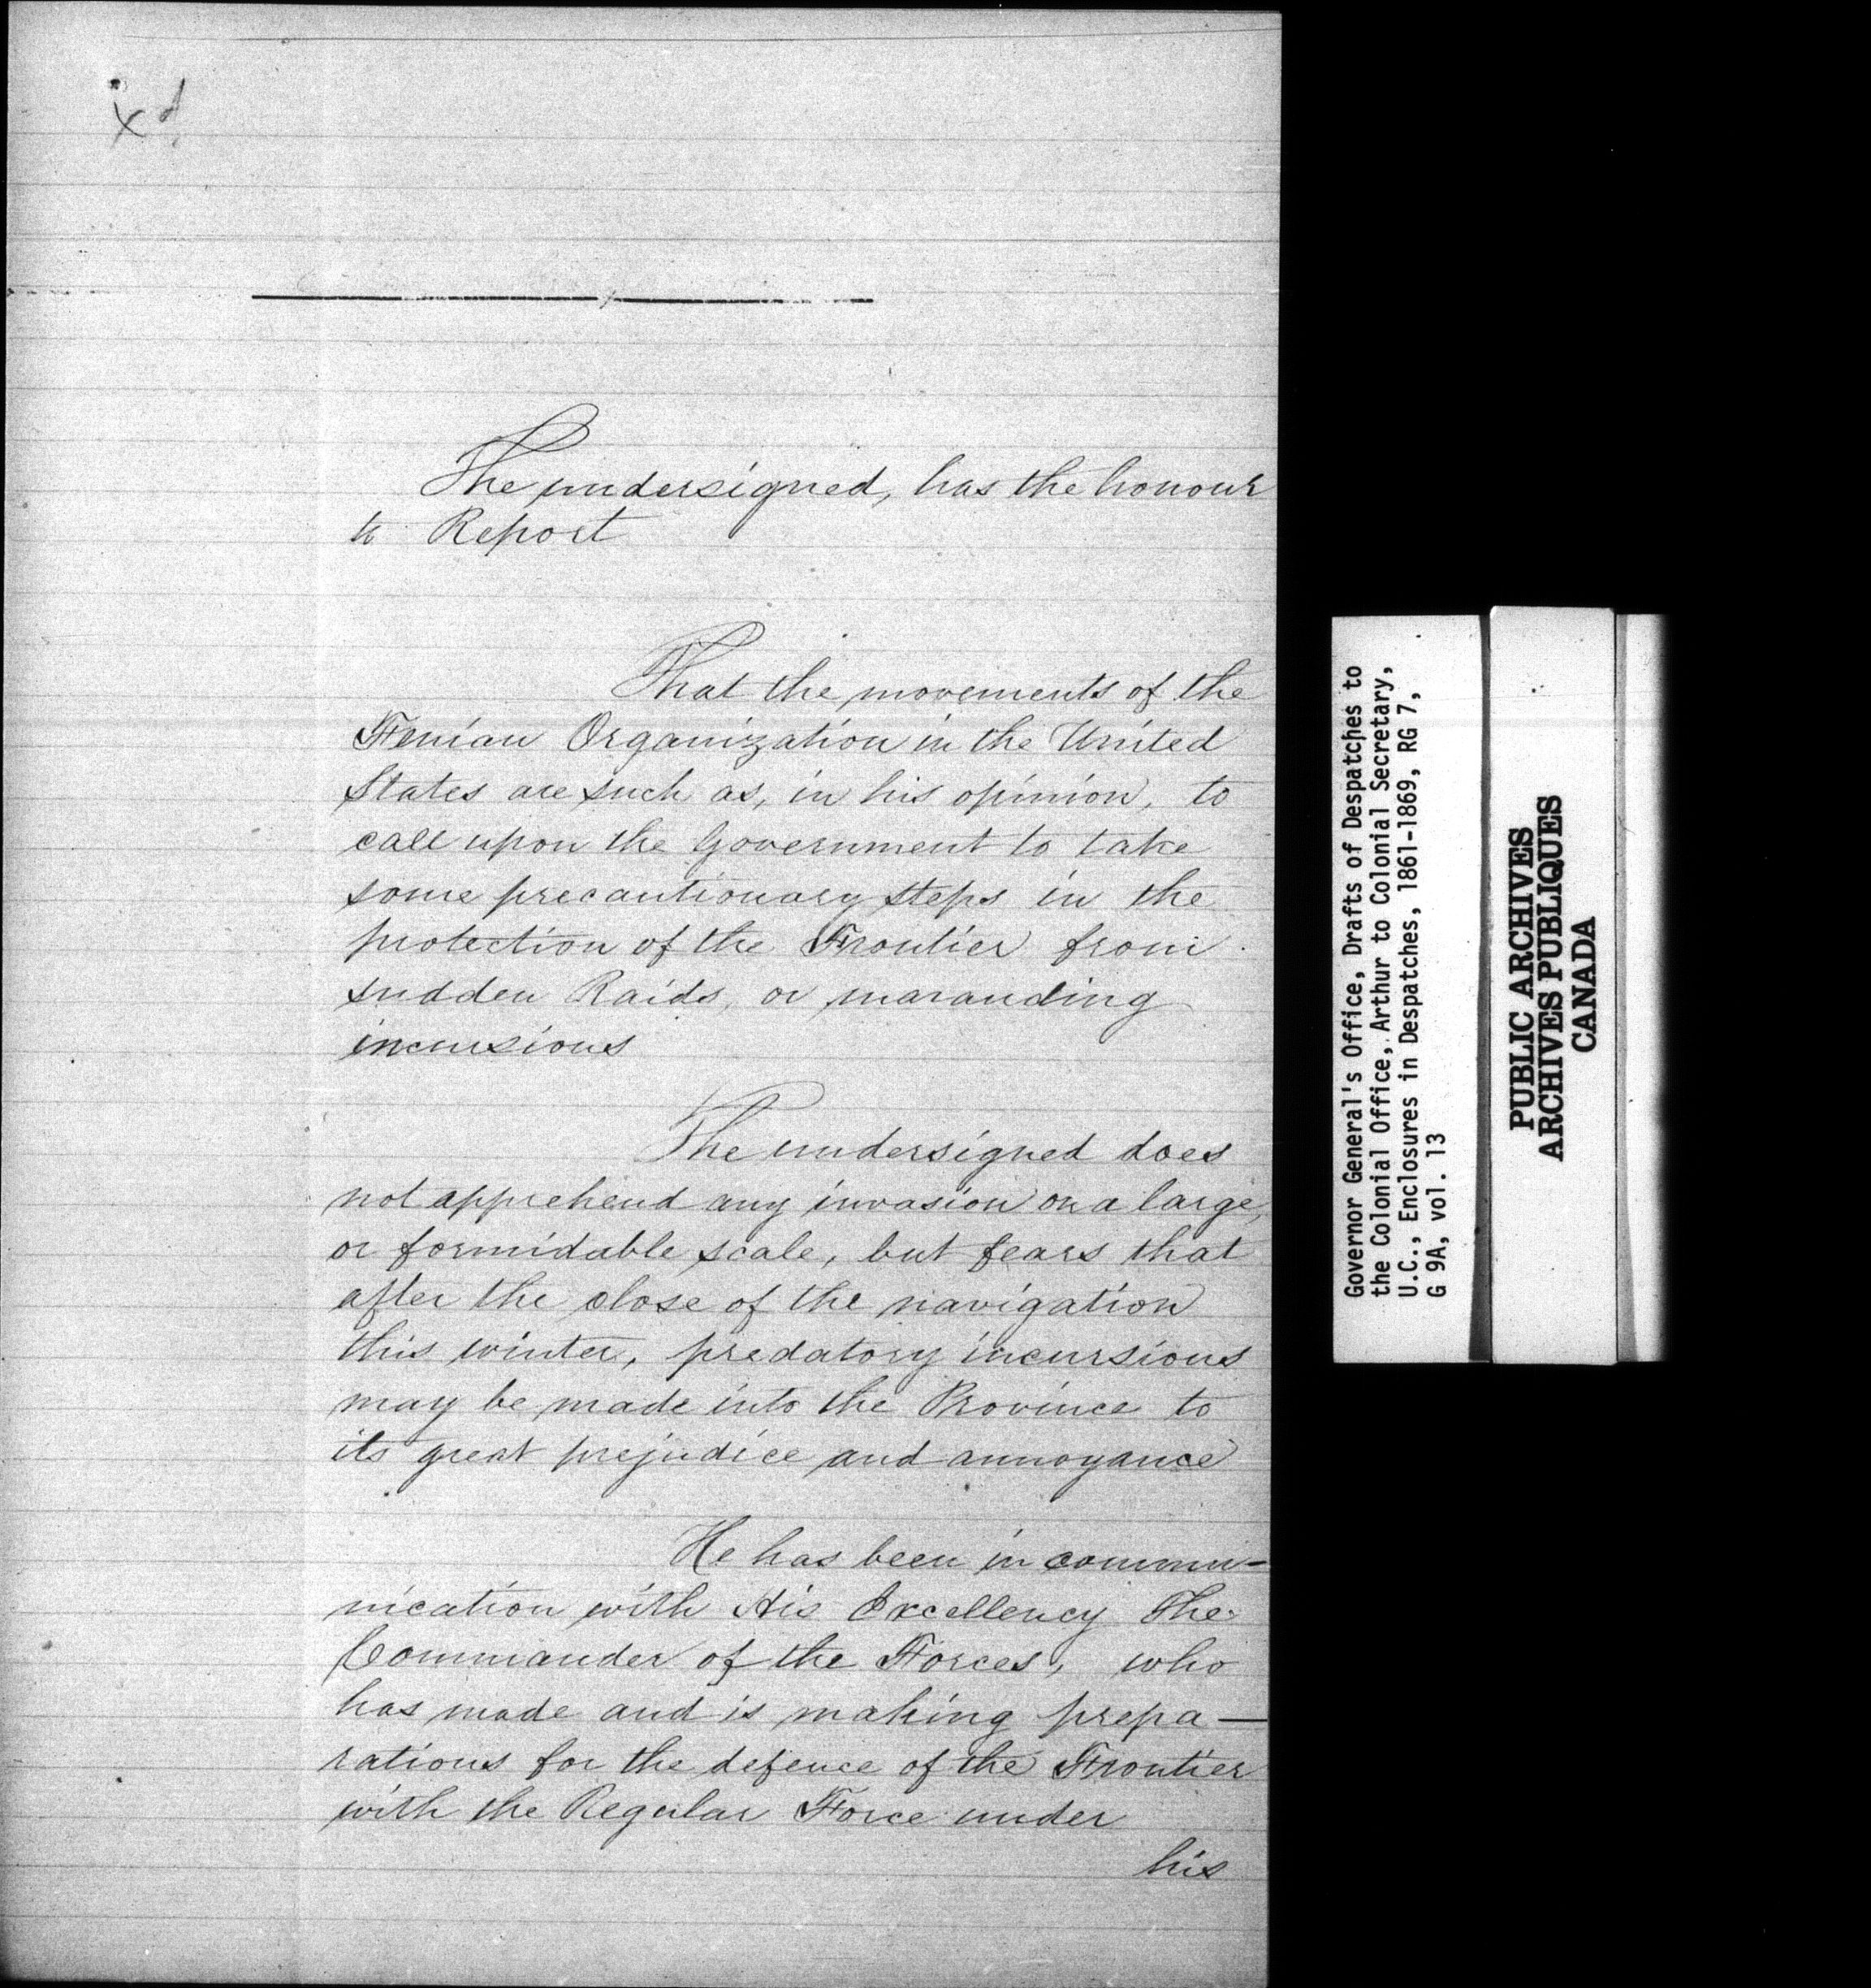 The undersigned, has the honour
to Report
That the movements of the
Fenian Organization in the United
States are such as, in his opinion, to
call upon the Government to take
some precautionary steps in the
protection of the Frontier from
sudden Raids, or marauding
incursions
The undersigned does
not apprehend any invasion on a large,
or formidable scale, but fears that
after the close of the navigation
this winter, predatory incursions
may be made into the Province to
its great prejudice and annoyance
He has been in commu-
nication with His Excellency The
Commander of the Forces, who
has made and is making prepa-
rations for the defence of the Frontier
with the Regular Force under
his
Governor General's Office, Drafts of Despatches to
the Colonial Office, Arthur to Colonial Secretary,
U.C., Enclosures in Despatches, 1861-1869, RG 7,
G 9A, vol. 13
PUBLIC ARCHIVES
ARCHIVES PUBLIQUES
CANADA